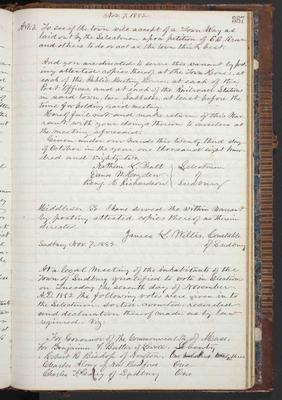 Nov. 7, 1882.
387
Art. 2. To see if the town will accept of a Town Way as
laid out by the Selectmen, upon petition of
and others to do or act as the town think best.
And you are directed to serve this warrant by post-
ing attested copies thereof at the Town House, at
each of the Public Meeting Houses, at each of the
Post Offices and at each of the Railroad Stations
in said town, two Sabbaths at least before the
time for holding said meeting.
Hereof fail not and make return of this War-
rant with your doings thereon to ourselves at
the meeting aforesaid.
Given under our hands this twenty third day
of October in the year one thousand eight hun-
dred and eighty two.
Selectmen
of
Sudbury
Middlesex Ss. I have served the within warrant
by posting attested copies thereof as therein
directed.
James L. Willis, Constable
Sudbury Nov. 7, 1882. of Sudbury
At a legal Meeting of the Inhabitants of the
Town of Sudbury qualified to vote in Elections
on Tuesday the seventh day of November
A.D. 1882 the following votes were given in to
the Selectmen, sorted, counted, recorded
and declaration thereof made as by law
required. Viz:
For Governor of the Commonwealth of Mass.
For Benjamin F. Butler of Lowell
" Robert R. Bishop of Newton, One hundred
Charles Almy of New Bedford One
Charles of Sudbury One